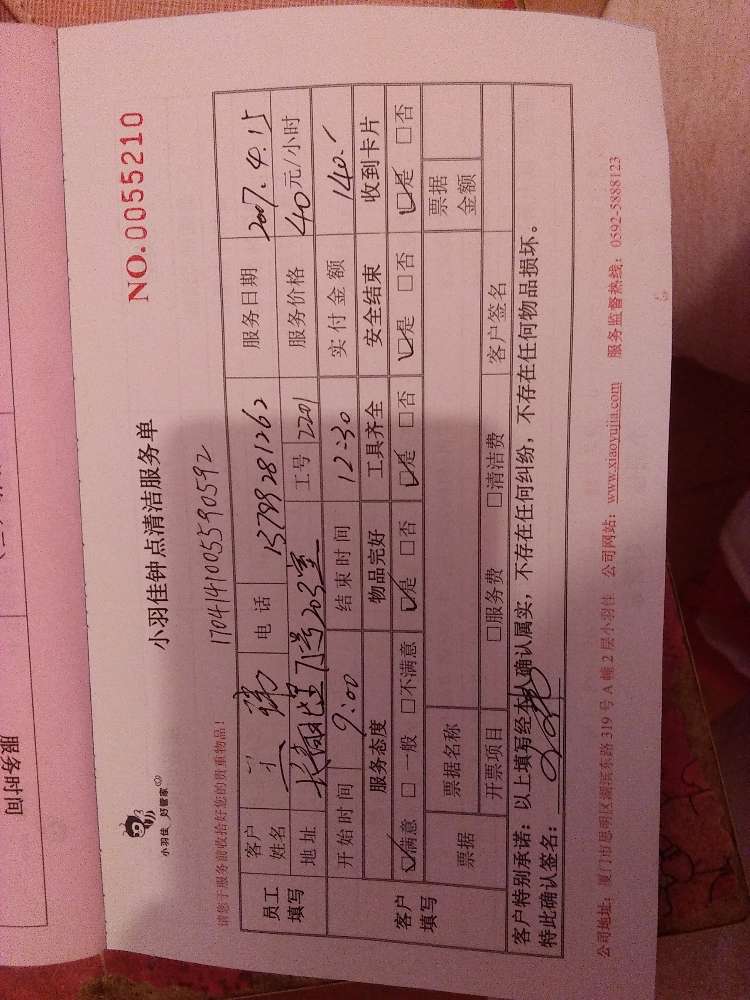 小羽佳钟点清洁服务单
NO.0055210
小羽佳 好管家
请您于服务前收拾好您的贵重物品!
1704141005590592
员工填写 客户姓名 电话 13799281262 服务日期 2007.4.15
地址 203室 工号 2201 服务价格 40元/小时
开始时间 9:00 结束时间 12:30 实付金额 140.
客户填写 服务态度 物品完好 工具齐全 安全结束 收到卡片
☑满意 □一般 □不满意 ☑是 □否 ☑是 □否 ☑是 □否 ☑是 □否
票据 票据名称 票据金额
开票项目 □服务费 □清洁费 客户签名
客户特别承诺:以上填写经本人确认属实,不存在任何纠纷,不存在任何物品损坏。
特此确认签名:
公司地址:厦门市思明区湖滨东路 319 号 A 幢 2 层小羽佳 公司网站:www.xiaoyujia.com 服务监督热线:0592-5888123
服务时间